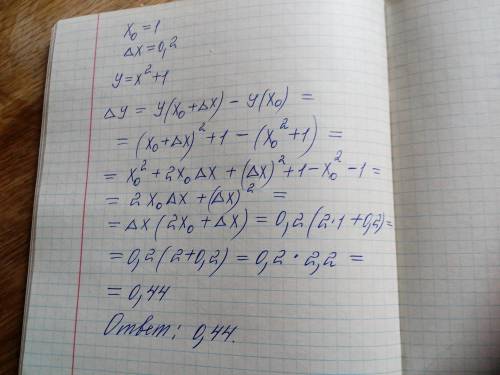 x₀ = 1
Δx = 0,2
y = x² + 1
Δy = y(x₀ + Δx) - y(x₀) =
= (x₀ + Δx)² + 1 - (x₀² + 1) =
= x₀² + 2x₀Δx + (Δx)² + 1 - x₀² - 1 =
= 2x₀Δx + (Δx)² =
= Δx(2x₀ + Δx) = 0,2(2·1 + 0,2) =
= 0,2(2 + 0,2) = 0,2 · 2,2 =
= 0,44
Ответ: 0,44.